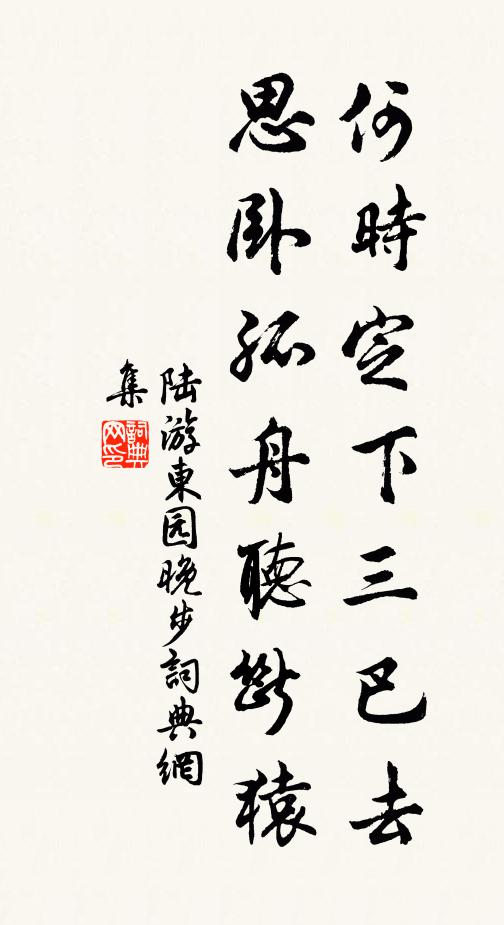 何時定下三巴去
思卧孤舟聽斷猿
陆游東园晚步詞典網
集
詞典网印